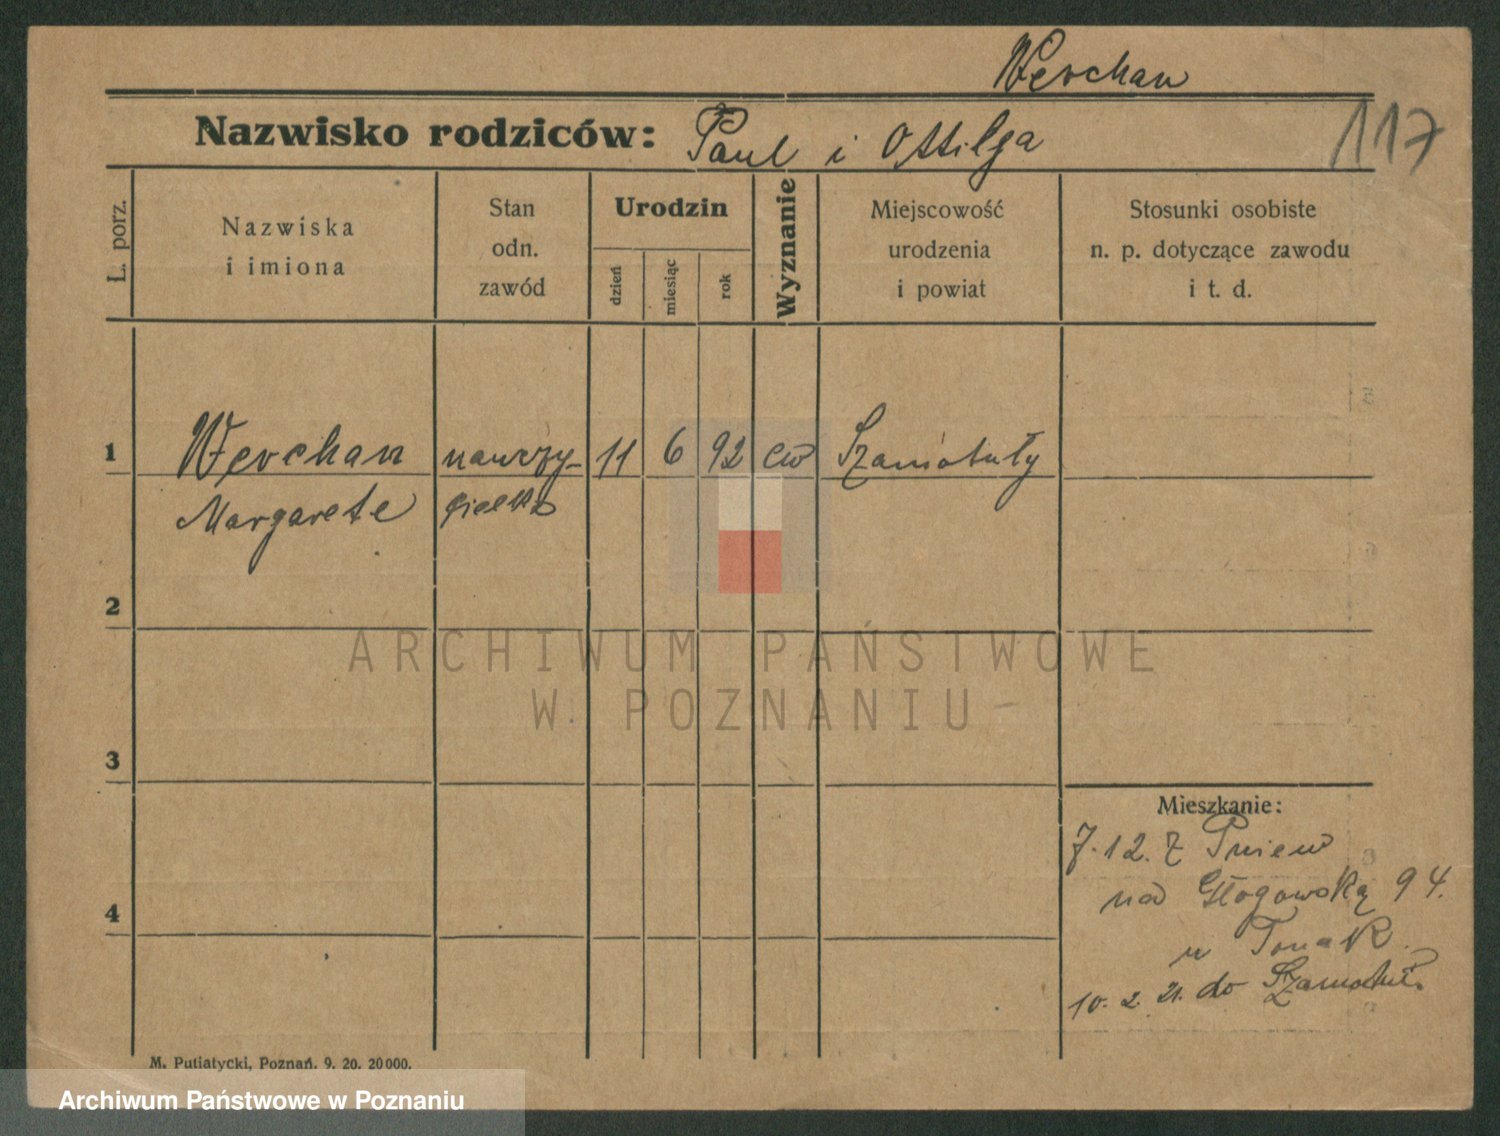 Werchan
Nazwisko rodziców: Paul i Ottilja
117
L. porz.
Nazwiska
i imiona
Stan
odn.
zawód
Urodzin
dzień
miesiąc
rok
Wyznanie
Miejscowość
urodzenia
i powiat
Stosunki osobiste
n. p. dotyczące zawodu
i t. d.
1 Werchan nauczy- 11 6 92 ew Szamotuły
Margarete cielka
2
3
4
Mieszkanie:
7.12. z Pniew
Głogowską 94.
u
10. 2. 21. do Szamotuł.
M. Putiatycki, Poznań. 9. 20. 20000.
ARCHIWUM PAŃSTWOWE
W POZNANIU
Archiwum Państwowe w Poznaniu